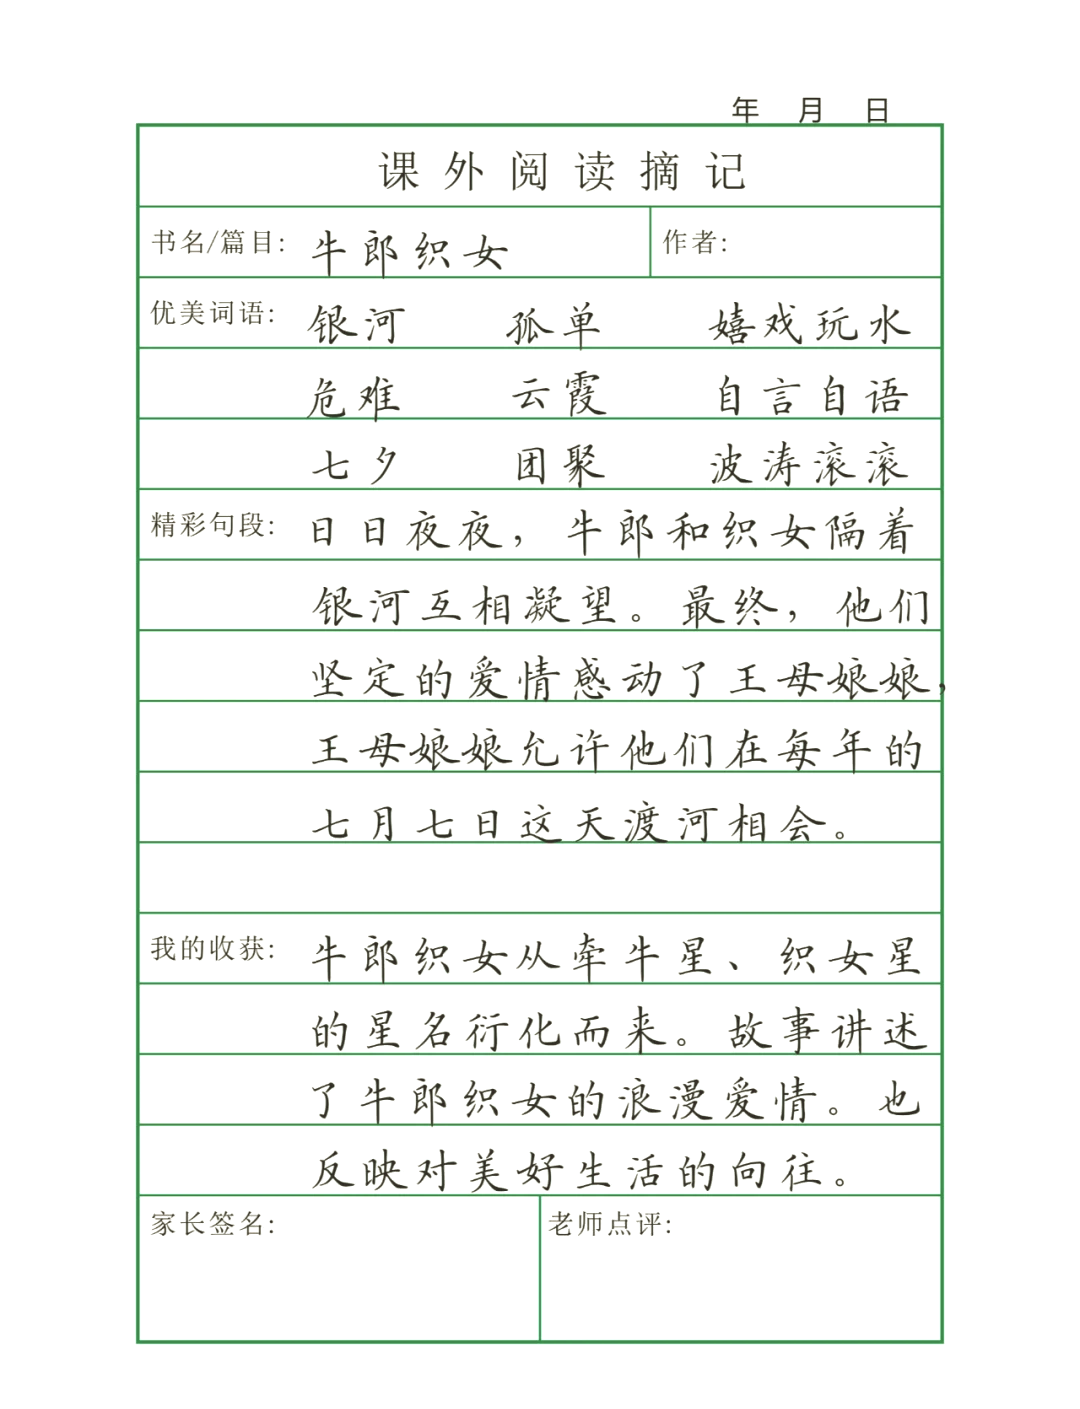 年 月 日
课外阅读摘记
书名/篇目: 牛郎织女 作者:
优美词语: 银河 孤单 嬉戏玩水
危难 云霞 自言自语
七夕 团聚 波涛滚滚
精彩句段: 日日夜夜，牛郎和织女隔着
银河互相凝望。最终，他们
坚定的爱情感动了王母娘娘，
王母娘娘允许他们在每年的
七月七日这天渡河相会。
我的收获: 牛郎织女从牵牛星、织女星
的星名衍化而来。故事讲述
了牛郎织女的浪漫爱情。也
反映对美好生活的向往。
家长签名: 老师点评: